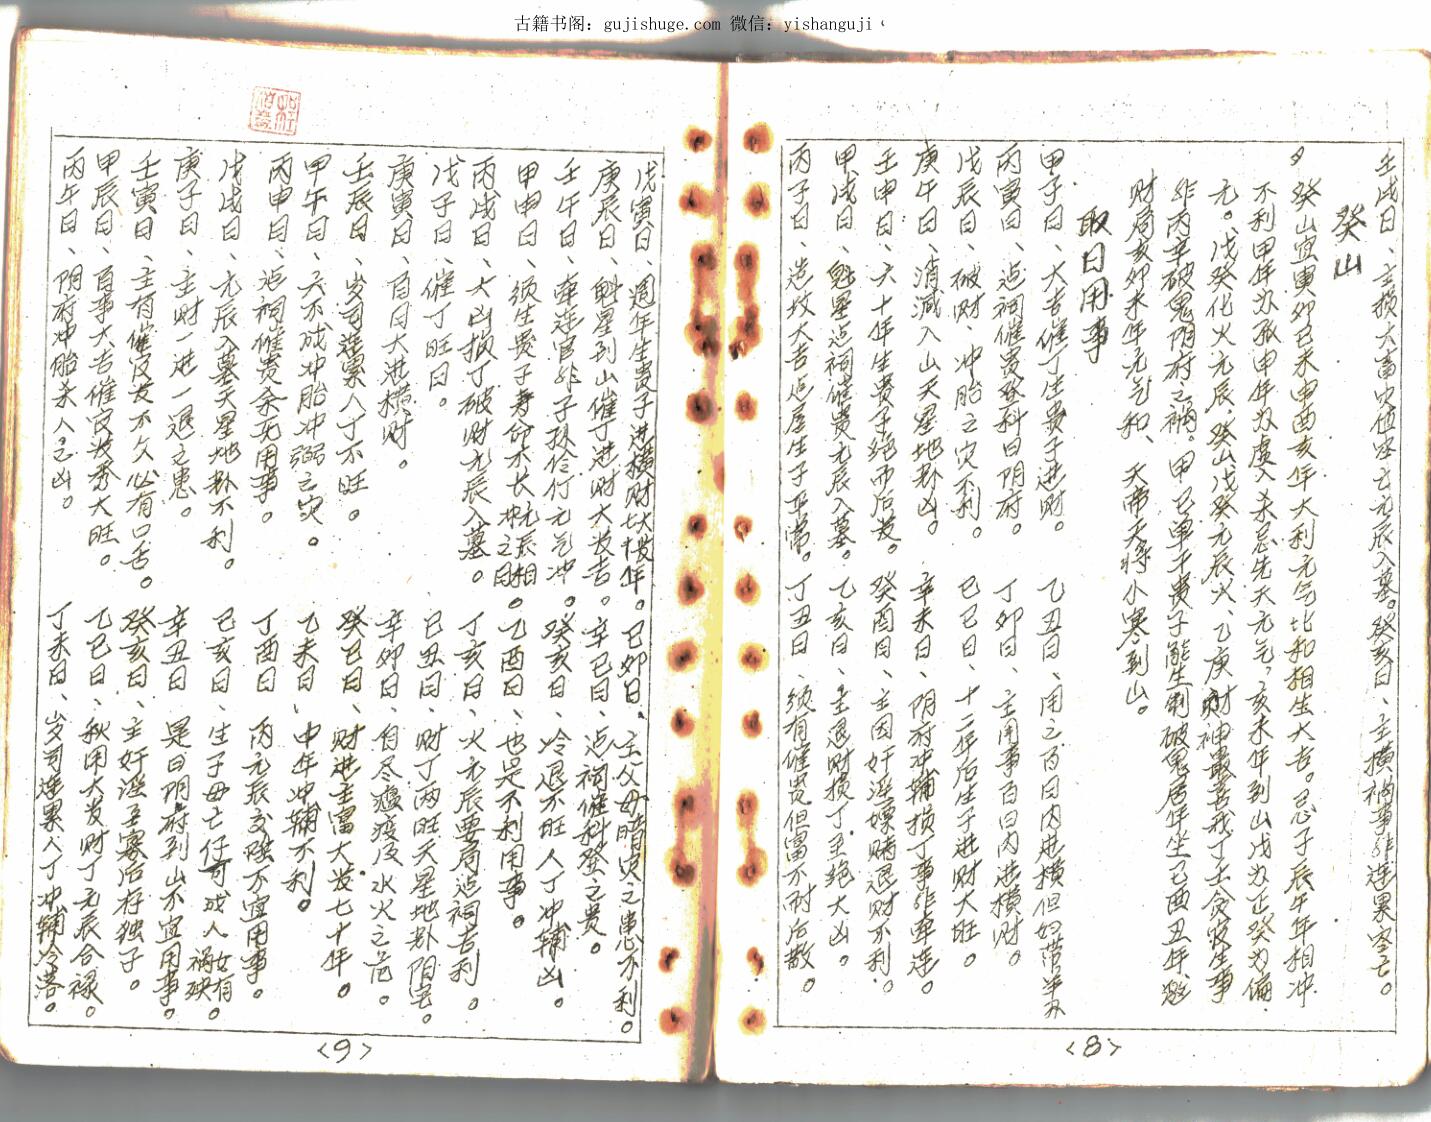 古籍书阁：gujishuge.com 微信：yishanguji
壬戌日、主损大畜 元辰入墓。癸亥日、主横祸事非连累
癸山
癸山宜寅卯 未申酉亥年大利元气比和相生大吉。忌子辰午年相冲
不利甲年 元，亥未年到山戊为正癸为偏
元。戊癸化火元辰，癸山戊癸元辰火、乙庚财神最喜 丁壬贪 生事
非丙辛破鬼阴府之祸。甲己 贵子能生 破鬼 巳酉丑年
财局亥卯未年元气和、天帝天将小寒到山。
取日用事
甲子日、大吉催丁生贵子进财。乙丑日、用之百日内进横但妇带
丙寅日、造祠催贵登科日阴府。丁卯日、主用事百日内进横财。
戊辰日、破财、冲胎之灾不利。己巳日、十二年后生子进财大旺。
庚午日、消减入山天星地卦凶。辛未日、阴府冲辅损丁事非牵连。
壬申日、六十年生贵子绝而后发。癸酉日、主因奸淫嫖赌退财不利。
甲戌日、魁星造祠催贵元辰入墓。乙亥日、主退财损丁至绝大凶。
丙子日、造坟大吉造屋生子平常。丁丑日、须有催贵但富不耐后败。
<8>
戊寅日、週年生贵子进横财 年。己卯日、主父母 灾之患不利。
庚辰日、魁星到山催丁进财大发吉。辛巳日、造祠催科登之贵。
壬午日、牵连官非子孙伶仃元气冲。癸亥日、冷退不旺人丁冲辅凶。
甲申日、须生贵子寿命不长 元辰相冲之 。乙酉日、也是不利用事。
丙戌日、大凶损丁破财元辰入墓。丁亥日、火元辰要局造祠吉利。
戊子日、催丁旺日。己丑日、财丁两旺天星地卦阴宅。
庚寅日、百日大进横财。辛卯日、自尽瘟疫及水火之危。
壬辰日、岁司连累人丁不旺。癸巳日、财进主富大发七十年。
甲午日、六不成冲胎冲弱之灾。乙未日、中年冲辅不利。
丙申日、造祠催贵余无用事。丁酉日 丙元辰交 不宜用事。
戊戌日、元辰入墓天星地卦不利。己亥日、生子母亡 可成人女有祸殃。
庚子日、主财一进一退之患。辛丑日 是日阴府到山不宜用事。
壬寅日、主有催官发不久必有口舌。癸亥日、主奸淫主寡后存独子。
甲辰日、百事大吉催官发秀大旺。乙巳日、秋用大发财丁元辰合禄。
丙午日、阴府冲胎杀人之凶。丁未日、岁司连累人丁冲辅冷落。
<9>